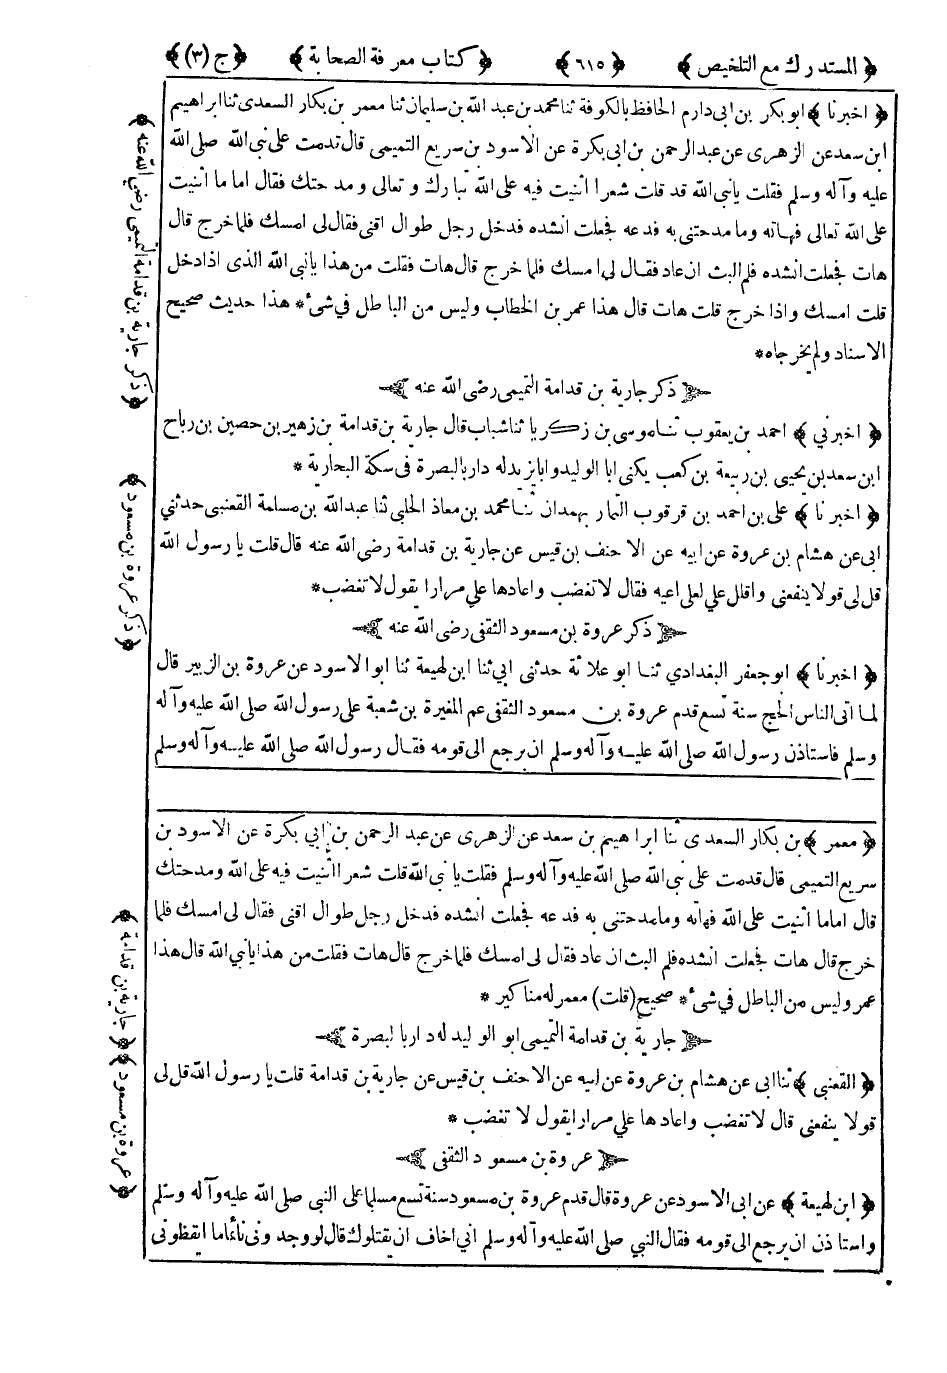 ﴿ المستدرك مع التلخيص ﴾ ﴿ ٦١٥ ﴾ ﴿ كتاب معرفة الصحابة ﴾ ﴿ ج (٣) ﴾
﴿ اخبرنا ﴾ ابو بكر بن ابى دارم الحافظ بالكوفة ثنا محمد بن عبد الله بن سليمان ثنا معمر بن بكار السعدى ثنا ابراهيم
ابن سعد عن الزهرى عن عبد الرحمن بن ابى بكرة عن الاسود بن سريع التميمى قال قدمت على نبى الله صلى الله
عليه وآله وسلم فقلت يا نبى الله قد قلت شعرا أثنيت فيه على الله تبارك و تعالى و مدحتك فقال اما ما أثنيت
على الله تعالى فهاته وما مدحتنى به فدعه فجعلت انشده فدخل رجل طوال اقنى فقال لى امسك فلما خرج قال
هات فجعلت انشده فلم البث ان عاد فقال لى امسك فلما خرج قال هات فقلت من هذا يا نبى الله الذى اذا دخل
قلت امسك واذا خرج قلت هات قال هذا عمر بن الخطاب وليس من الباطل فى شئ * هذا حديث صحيح
الاسناد ولم يخرجاه *
ذكر جارية بن قدامة التميمى رضى الله عنه
﴿ اخبرني ﴾ احمد بن يعقوب ثنا موسى بن زكريا ثنا شباب قال جارية بن قدامة بن زهير بن حصين بن رباح
ابن سعد بن يحيى بن ربيعة بن كعب يكنى ابا الوليد و ابا يزيد له دار بالبصرة فى سكة البحارية *
﴿ اخبرنا ﴾ على بن احمد بن قرقوب التمار بهمدان ثنا محمد بن معاذ الحلبي ثنا عبدالله بن مسلمة القعنبى حدثني
ابى عن هشام بن عروة عن ابيه عن الاحنف بن قيس عن جارية بن قدامة رضى الله عنه قال قلت يا رسول الله
قل لى قولا ينفعنى واقلل علي لعلى اعيه فقال لا تغضب واعادها علي مرارا يقول لا تغضب *
ذكر عروة بن مسعود الثقفى رضى الله عنه
﴿ اخبرنا ﴾ ابو جعفر البغدادي ثنا ابو علاثة حدثنى ابي ثنا ابن لهيعة ثنا ابو الاسود عن عروة بن الزبير قال
لما اتى الناس الحج سنة تسع قدم عروة بن مسعود الثقفى عم المغيرة بن شعبة على رسول الله صلى الله عليه وآله
وسلم فاستاذن رسول الله صلى الله عليه وآله وسلم ان يرجع الى قومه فقال رسول الله صلى الله عليه وآله وسلم
﴿ معمر ﴾ بن بكار السعدى ثنا ابراهيم بن سعد عن الزهرى عن عبد الرحمن بن ابي بكرة عن الاسود بن
سريع التميمى قال قدمت على نبى الله صلى الله عليه وآله وسلم فقلت يا نبى الله قلت شعرا اثنيت فيه على الله ومدحتك
قال اما ما أثنيت على الله فهاته وما مدحتنى به فدعه فجعلت انشده فدخل رجل طوال اقنى فقال لى امسك فلما
خرج قال هات فجعلت انشده فلم البث ان عاد فقال لى امسك فلما خرج قال هات فقلت من هذا يا نبي الله قال هذا
عمر وليس من الباطل في شئ * صحيح (قلت) معمر له مناكير *
جارية بن قدامة التميمى ابو الوليد له دار بالبصرة
﴿ القعنبى ﴾ ثنا ابى عن هشام بن عروة عن ابيه عن الاحنف بن قيس عن جارية بن قدامة قلت يا رسول الله قل لى
قولا ينفعنى قال لا تغضب واعادها علي مرارا يقول لا تغضب *
عروة بن مسعود الثقفى
﴿ ابن لهيعة ﴾ عن ابى الاسود عن عروة قال قدم عروة بن مسعود سنة تسع مسلما على النبي صلى الله عليه وآله وسلم
واستاذن ان يرجع الى قومه فقال النبي صلى الله عليه وآله وسلم اني اخاف ان يقتلوك قال لو وجدونى نائما ما ايقظونى
﴿ ذكر جارية بن قدامة التميمى رضي الله عنه ﴾
﴿ ذكر عروة بن مسعود ﴾
﴿ جارية بن قدامة ﴾
﴿ عروة بن مسعود ﴾